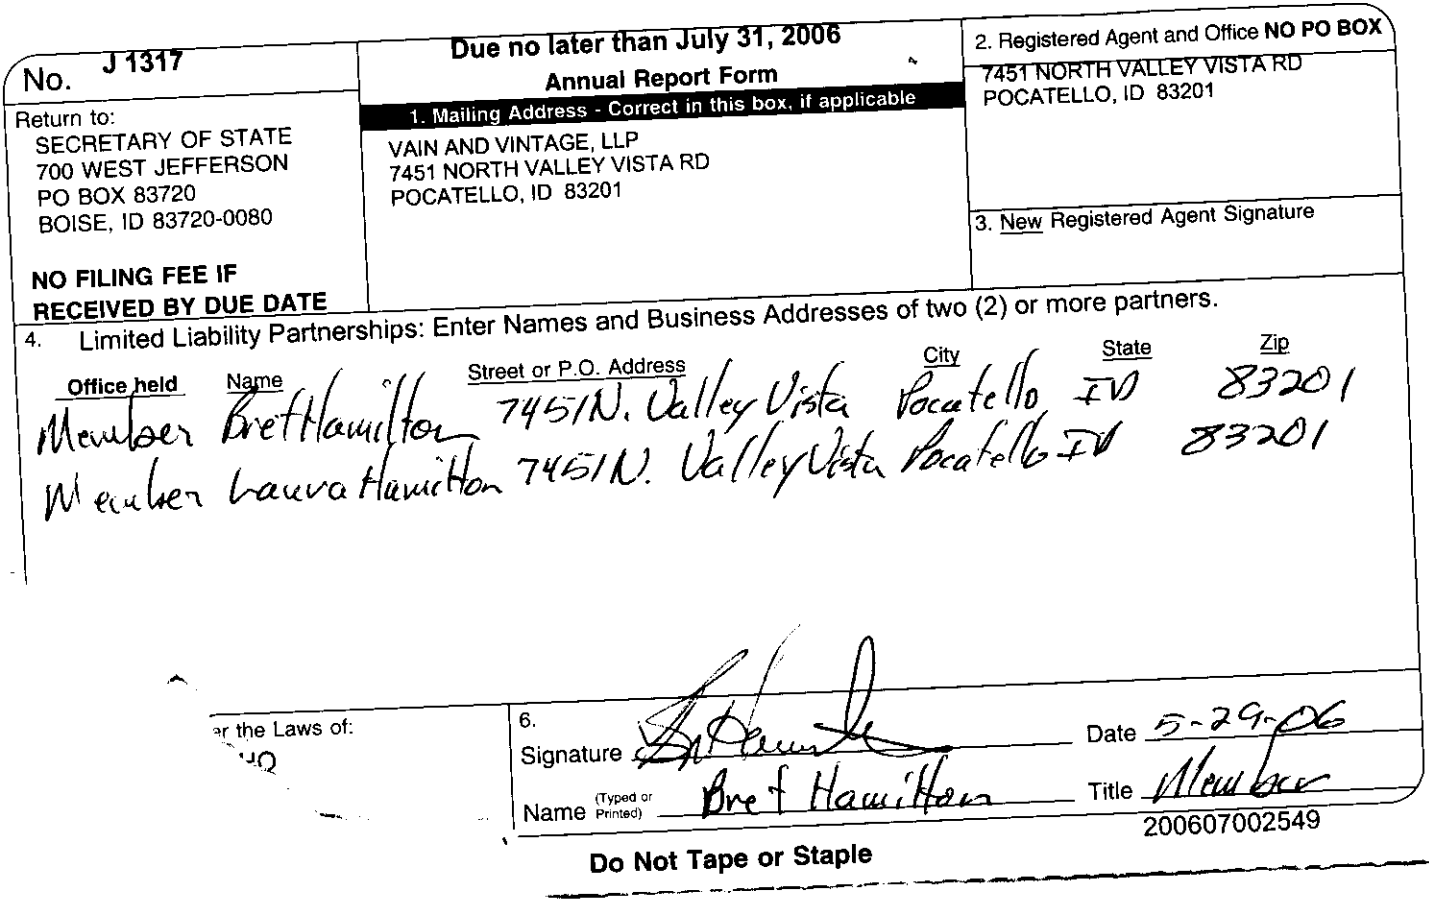 No. J 1317
Return to:
SECRETARY OF STATE
700 WEST JEFFERSON
PO BOX 83720
BOISE, ID 83720-0080
NO FILING FEE IF
RECEIVED BY DUE DATE
Due no later than July 31, 2006
Annual Report Form
1. Mailing Address - Correct in this box, if applicable
VAIN AND VINTAGE, LLP
7451 NORTH VALLEY VISTA RD
POCATELLO, ID 83201
2. Registered Agent and Office NO PO BOX
7451 NORTH VALLEY VISTA RD
POCATELLO, ID 83201
3. New Registered Agent Signature
4. Limited Liability Partnerships: Enter Names and Business Addresses of two (2) or more partners.
Office held Name Street or P.O. Address City State Zip
Member Bret Hamilton 7451 N. Valley Vista Pocatello ID 83201
Member Laura Hamilton 7451 N. Valley Vista Pocatello ID 83201
er the Laws of:
HO
6.
Signature Date 5-29-06
Name (Typed or Printed) Bret Hamilton Title Member
200607002549
Do Not Tape or Staple